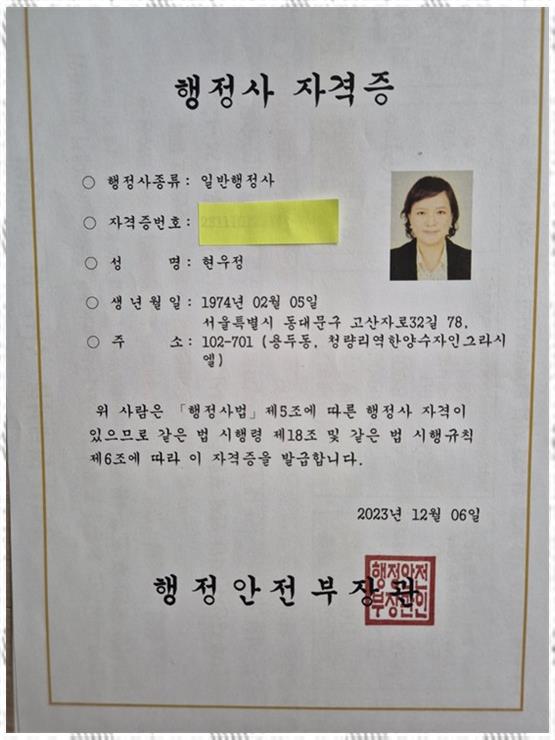 행정사 자격증
○ 행정사종류: 일반행정사
○ 자격증번호:
○ 성 명: 현우정
○ 생년월일: 1974년 02월 05일
서울특별시 동대문구 고산자로32길 78,
○ 주 소: 102-701 (용두동, 청량리역한양수자인그라시
엘)
위 사람은 「행정사법」제5조에 따른 행정사 자격이
있으므로 같은 법 시행령 제18조 및 같은 법 시행규칙
제6조에 따라 이 자격증을 발급합니다.
2023년 12월 06일
행정안전부장관
행정안전
부장관인